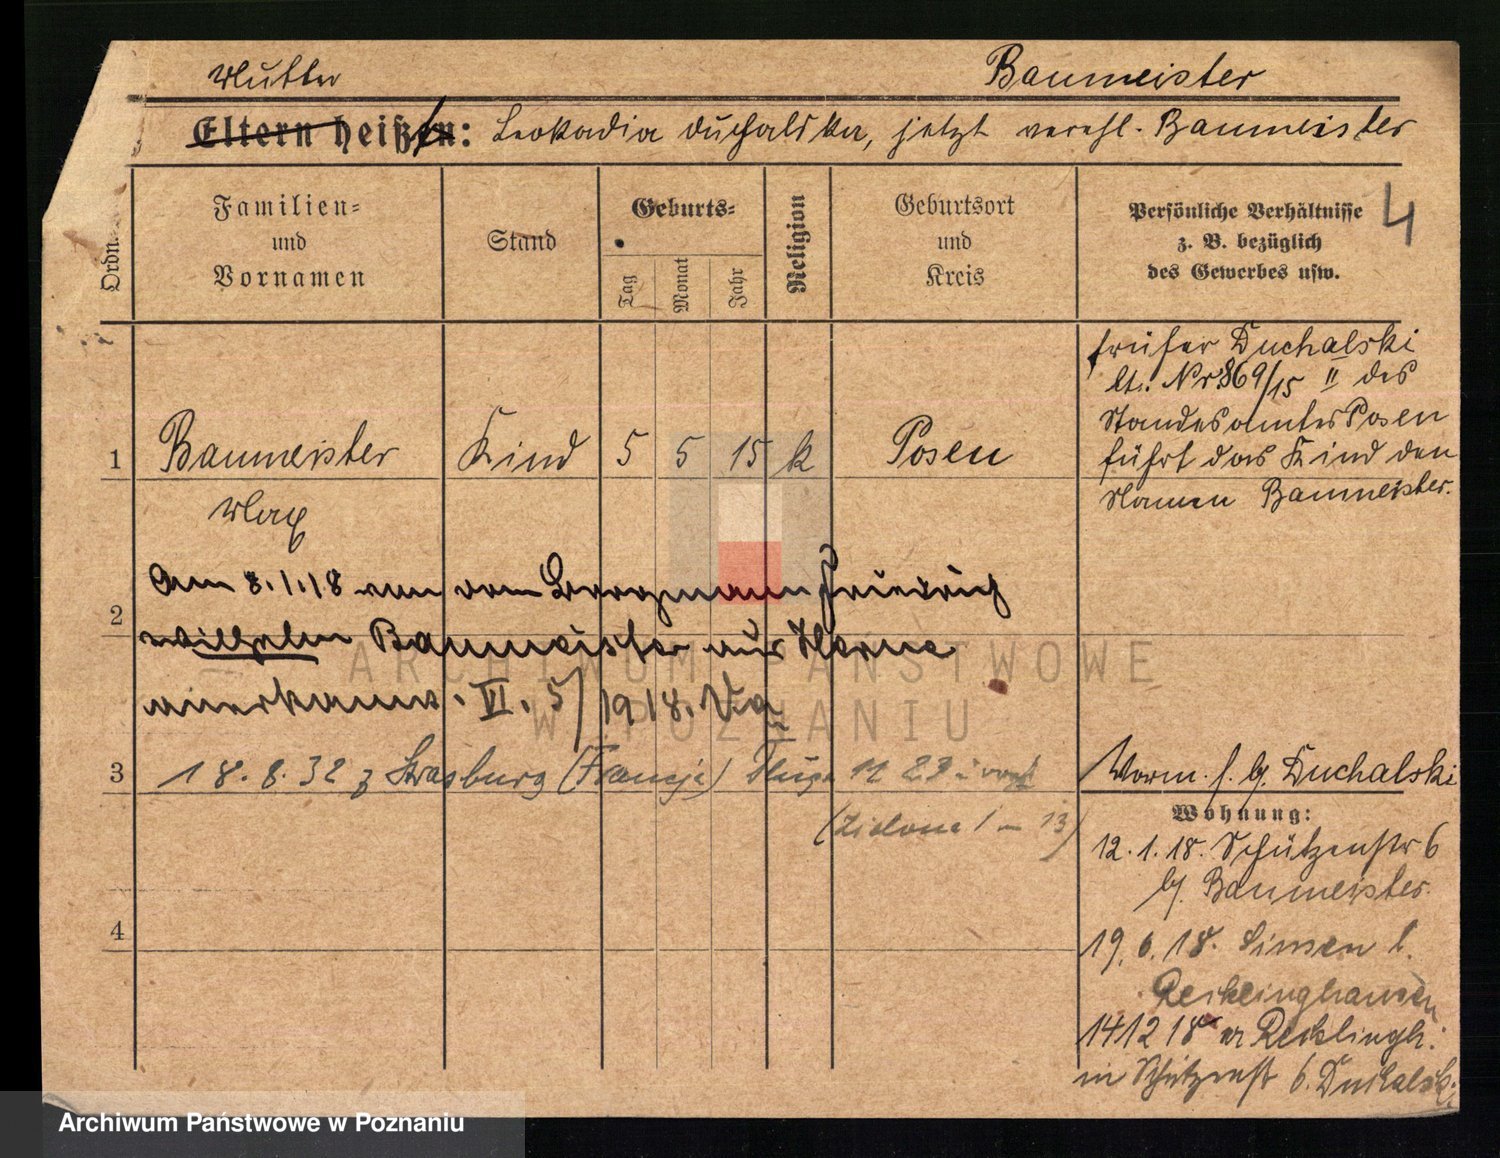 Mutter Baumeister
Eltern heißen: Leokadia Duchalska, jetzt verehl. Baumeister
Ordn.
Familien-
und
Vornamen
Stand
Geburts-
Tag
Monat
Jahr
Religion
Geburtsort
und
Kreis
Persönliche Verhältnisse
z. B. bezüglich
des Gewerbes usw.
4
früher Duchalski
lt. Nr 869/15 II des
Standesamtes Posen
führt das Kind den
Namen Baumeister.
1 Baumeister Kind 5 5 15 k Posen
Max
Am 8.1.18 von dem Bergmann Friedrich
2
Wilhelm Baumeister aus Herne
anerkannt. VI. 5/1918.
3 18.8.32 z Strasburg (Francja) Długa 11
13)
Vorm. f. bj. Duchalski
Wohnung:
12.1.18. Schützenstr 6
bj. Baumeister.
19.6.18. Sinsen b.
Recklinghausen
14 12 18 Recklingh.
in Schützenstr 6. Duchalski
4
ARCHIWUM PAŃSTWOWE
W POZNANIU
Archiwum Państwowe w Poznaniu